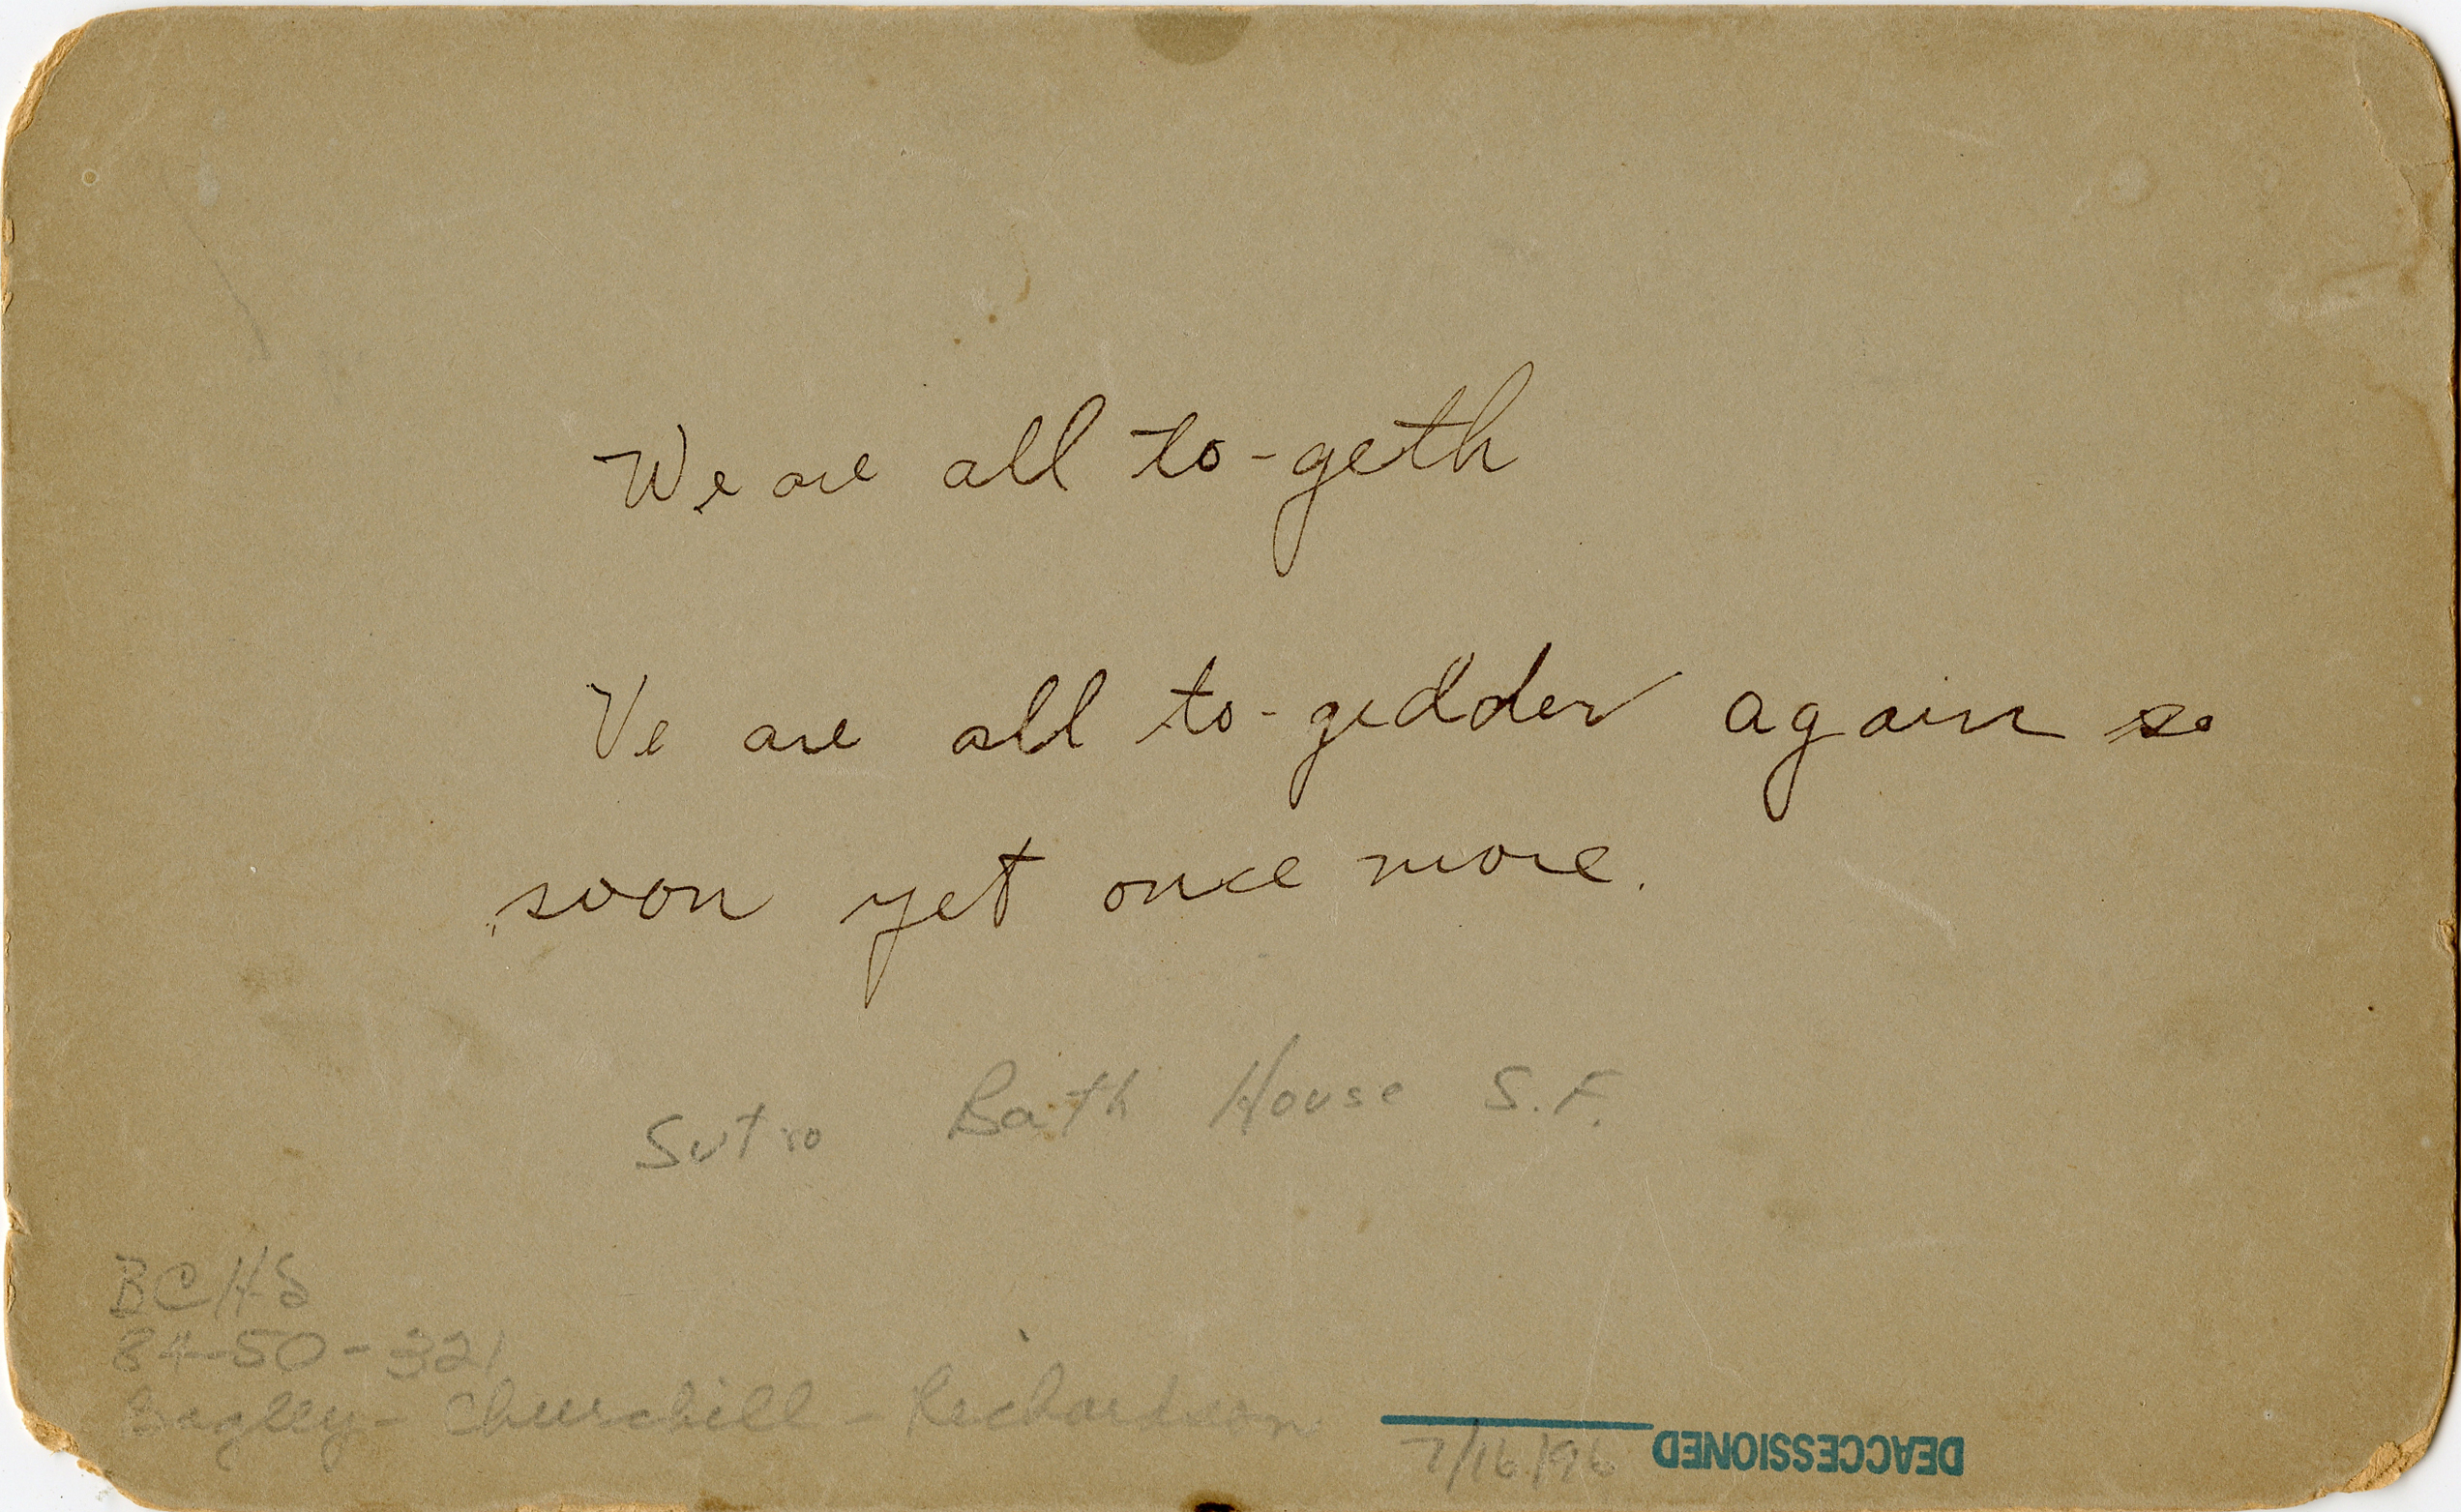 We are all to-geth
Ve are all to-gedder again so
soon yet once more.
Sutro Bath House S.F.
BCHS
84-50-321
Bagley - Churchill - Richardson
7/16/96 DEACCESSIONED